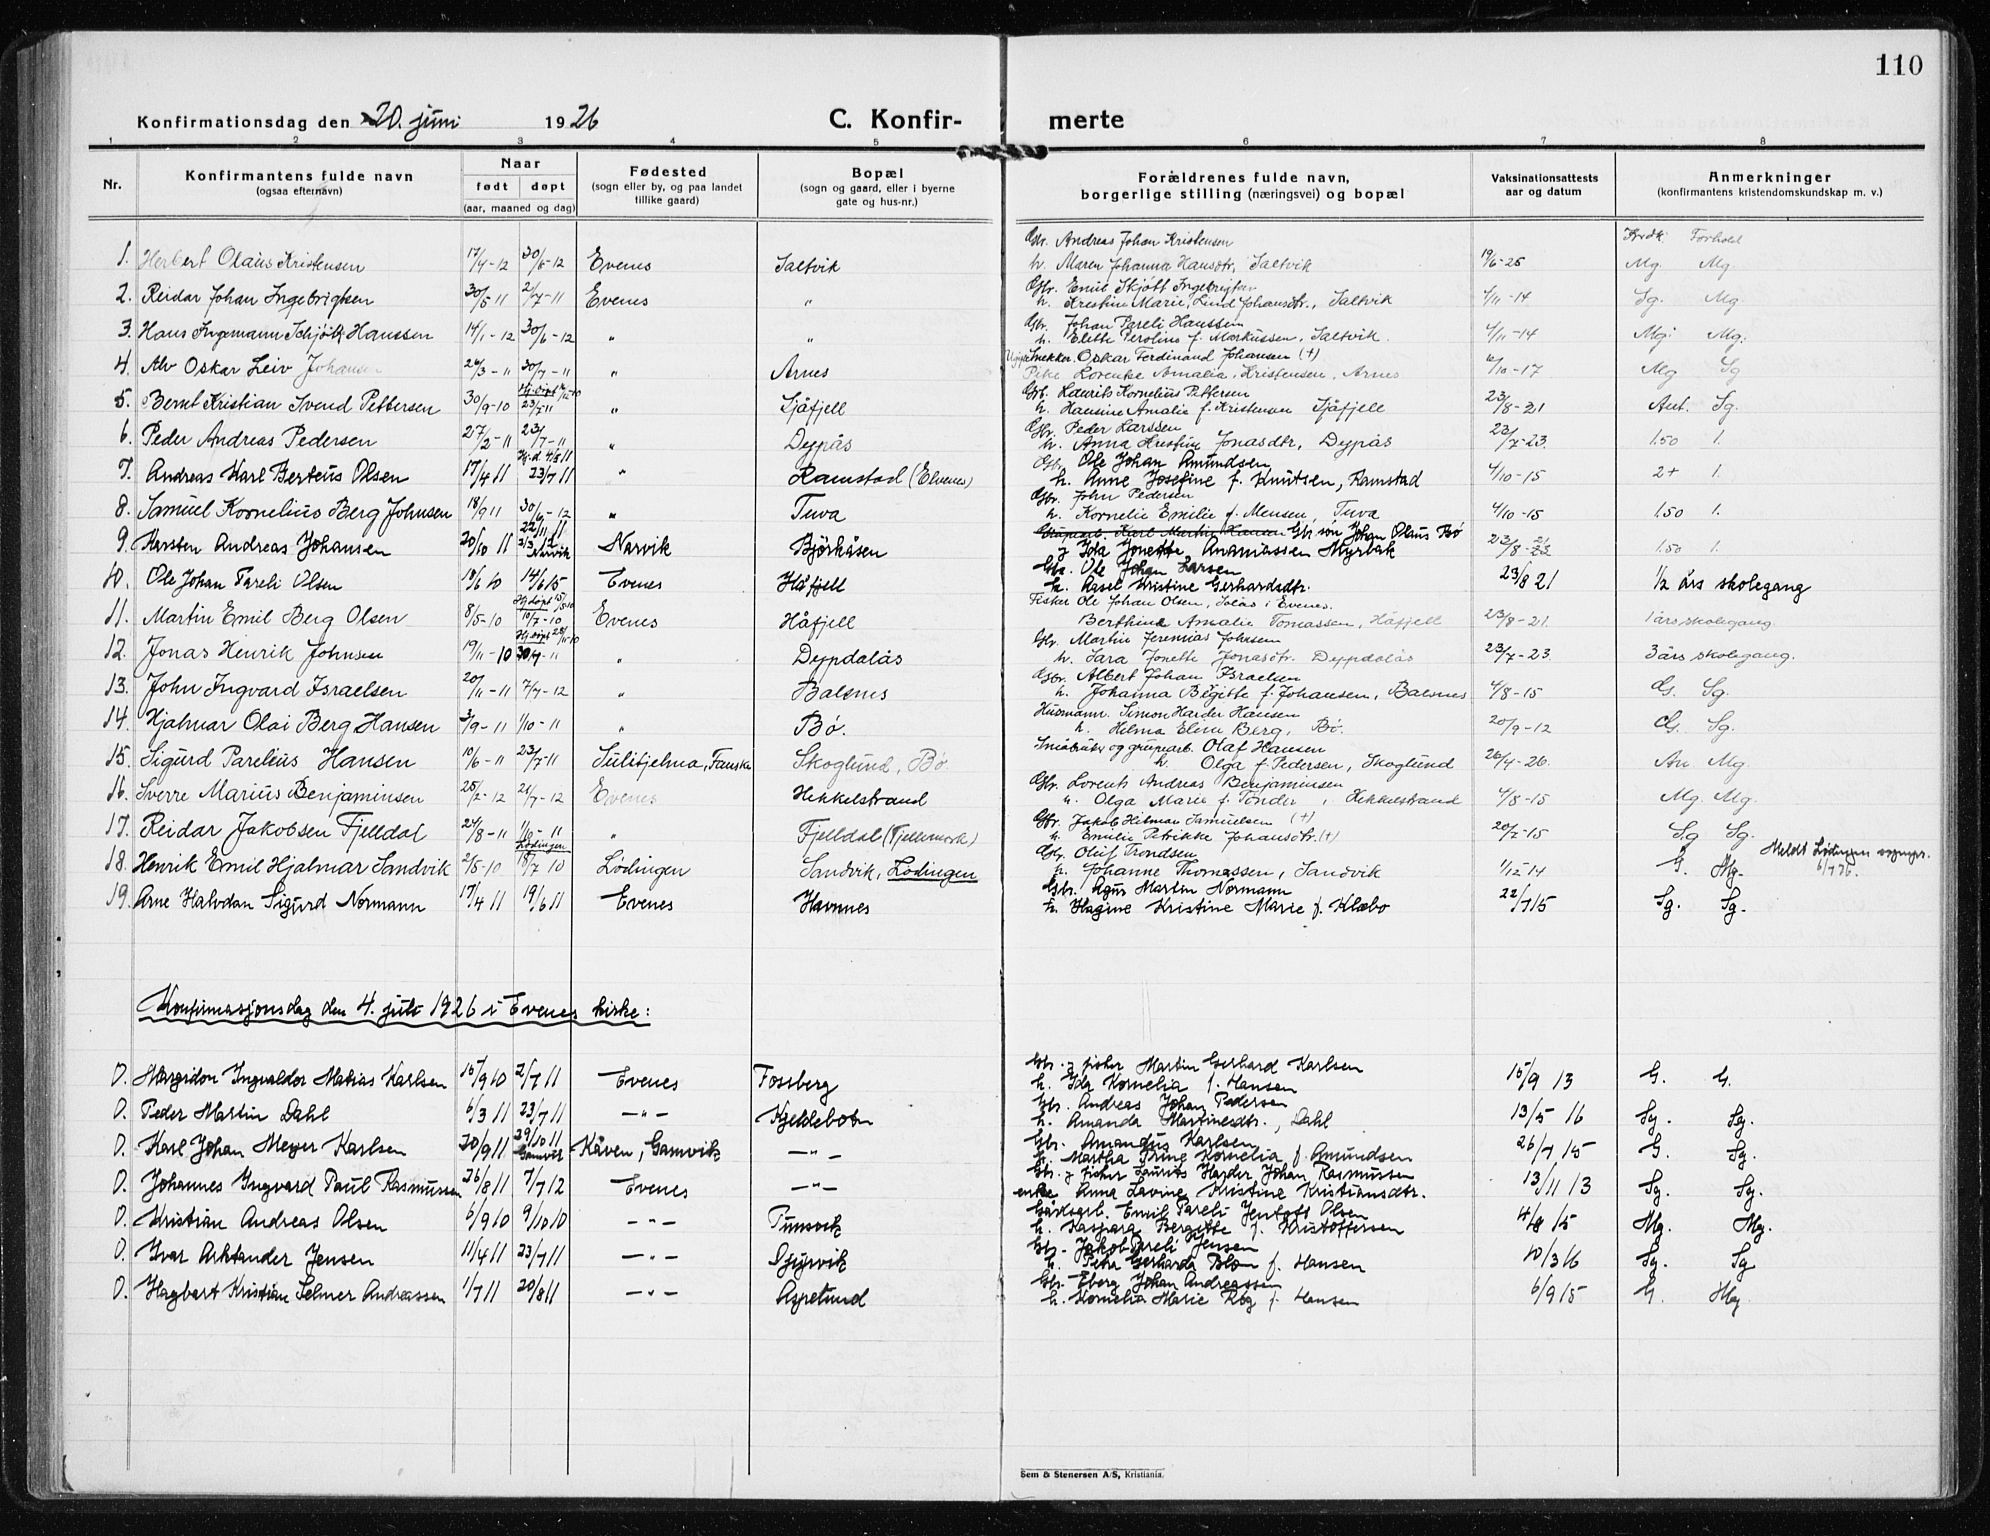 110
Konfirmationsdag den 20. juni 1926 C. Konfir- merte
1 2 3 4 5 6 7 8
Nr. Konfirmantens fulde navn (ogsaa efternavn) Naar født døpt (aar, maaned og dag) Fødested (sogn eller by, og paa landet tillike gaard) Bopæl (sogn og gaard, eller i byerne gate og hus-nr.) Forældrenes fulde navn, borgerlige stilling (næringsvei) og bopæl Vaksinationsattests aar og datum Anmerkninger (konfirmantens kristendomskundskap m. v.)
Krdk. Forhold
1. Herbert Olaus Kristensen 17/4-12 30/6-12 Evenes Saltvik Gbr. Andreas Johan Kristensen
h. Maren Johanna Hansdtr, Saltvik 19/6-25 Mg. Mg.
2. Reidar Johan Ingebrigtsen 30/5 11 2/7-11 Evenes " Gbr. Emil Skjøtt Ingebrigtsen
h. Kristine Marie Lund Johansdtr., Saltvik 4/11-14 Sg. Mg.
3. Hans Ingemann Schjøtt Hanssen 14/1-12 30/6-12 " " Gbr. Johan Pareli Hanssen
h. Elette Peroline f. Markussen, Saltvik. 4/11-14 Mg. Mg.
4. Alv Oskar Leiv Johansen 26/3-11 30/7-11 " Arnes Snekker. Oskar Ferdinand Johansen (+)
Pike Lorentse Amalia Kristensen, Arnes /10-17 Mg Sg
5. Bernt Kristian Svend Pettersen 30/9-10 23/7-11 " Sjåfjell Gbr. Laurits Kornelius Pettersen
h. Hansine Amalie f. Kristensen Sjåfjell 23/8-21 Ant. Sg.
6. Peder Andreas Pedersen 27/2-11 23/7-11 " Dypås Gbr. Peder Larssen
h. Anna Kristine Jonasdtr, Dypås 23/7-23. 1.50 1.
7. Andreas Karl Berteus Olsen 17/4 11 Hj.d. 4/5 11 23/7 11 " Ramstad (Elvenes) Gbr. Ole Johan Amundsen
h. Anne Josefine f. Knutsen, Ramstad 4/10-15 2+ 1.
8. Samuel Kornelius Berg Johnsen 18/9 11 30/6-12 " Tuva Gbr. John Pedersen
h. Kornelie Emilie f. Mensen, Tuva 4/10-15 1.50 1.
9. Karsten Andreas Johansen 20/10 11 Narvik Narvik Bjørkåsen Grubearb. Karl Martin Hansen Gb. søn Johan Olaus Bø
Ida Jonette Ananiassen Myrbak 23/8-22 1.50 1.
10. Ole Johan Pareli Olsen 19/6 10 14/6 15 Evenes Håfjell Gbr. Ole Johan Larsen
h. Aasel Kristine Gerhardsdtr. 23/8 21 1/2 års skolegang
11. Martin Emil Berg Olsen 8/5-10 10/7-10 Evenes Håfjell Fisker Ole Johan Olsen, Solås i Evenes.
Berthine Amalie Tomassen, Håfjell 23/8-21. 1 års skolegang
12. Jonas Henrik Johnsen 19/11-10 30/4-11 " Deypdalås Gbr. Martin Jeremias Johnsen
h. Sara Jonette Jonasdtr. Deypdalås 23/7-23. 3 års skolegang.
13. John Ingvard Israelsen 20/11-11 7/7-12 " Balsnes Gbr. Albert Johan Israelsen
h. Johanna Birgitte f. Johansen, Balsnes 4/8-15 G. Sg.
14. Hjalmar Olai Berg Hansen 3/9-11 1/10-11 " Bø. Husmann. Simon Harder Hansen
h. Helma Eline Berg, Bø. 20/9-12 G. Sg.
15. Sigurd Parelius Hansen 10/6-11 23/7-11 Sulitjelma, Fauske Skoglund, Bø. Småbruker og grubearb. Olaf Hansen
h. Olga f. Pedersen, Skoglund 26/4-26. An Mg.
16. Sverre Marius Benjaminsen 25/2-12 21/7-12 Evenes Hekkelstrand Gbr. Lorents Andreas Benjaminsen
h. Olga Marie f. Tønder, Hekkelstrand 4/8-15 Mg. Mg.
17. Reidar Jakobsen Fjelldal 24/8-11 1/10-11 " Fjelldal (Fjellmark) Gbr. Jakob Hilmar Samuelsen (+)
h. Emilie Petrikke Johansdtr. (+) 20/7-15 Sg Sg.
18. Henrik Emil Hjalmar Sandvik 2/5-10 Lødingen 18/7 10 Lødingen Sandvik, Lødingen Gbr. Oluf Trondsen
h. Johanne Thomassen, Sandvik 1/12-14 G. Mg. Meldt Lødingen sognepr. 6/7 26.
19. Arne Halvdan Sigurd Normann 17/4 11 19/6 11 Evenes Havnnes Gbr. Agur Martin Normann
h. Hagine Kristine Marie f. Klæbo 22/7 15 Sg. Sg.
Konfirmasjonsdag den 4. juli 1926 i Evenes kirke:
0. Margidon Ingvaldor Matias Karlsen 15/9 10 2/7 11 Evenes Fossberg Gbr. & fisker Martin Gerhard Karlsen
h. Ida Kornelia f. Hansen 15/9 13 G. G.
0. Peder Martin Dahl 6/3 11 23/7 11 -"- Kjeldebotn Gbr. Andreas Johan Pedersen
h. Amanda Martinesdtr., Dahl 13/5 16 Sg. Sg.
0. Karl Johan Meyer Karlsen 20/9 11 29/10 11 Gamvik Kåven, Gamvik -"- Gbr. Amandus Karlsen
h. Martha Trine Kornelia f. Amundsen 26/7 15 G. Sg.
0. Johannes Ingvard Paul Rasmussen 26/8 11 7/7 12 Evenes -"- Gbr. & fisker Laurits Harder Johan Rasmussen
enke Anna Lavine Kristine Kristiansdtr. 13/11 13 Sg. Sg.
0. Kristian Andreas Olsen 6/9 10 9/10 10 -"- Tunsvik Gårdsgrb. Emil Pareli Jentoft Olsen
h. Kaspara Bergitte f. Kristoffersen 4/8 15 Mg. Mg.
0. Ivar Arktander Jensen 11/4 11 23/7 11 -"- Djupvik Gbr. Jakob Pareli Jensen
h. Petra Gerharda Blom f. Hansen 10/3 16 Sg. Sg
0. Hagbart Kristian Selmer Andreassen 1/7 11 20/8 11 -"- Aspelund Gbr. Eberg Johan Andreassen
h. Kornelia Marie f. Hansen 6/9 15 G. Mg
Sem & Stenersen A/S, Kristiania.